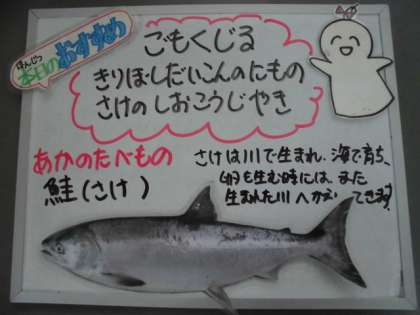 ほんじつ
本日のおすすめ
ごもくじる
きりぼしだいこんのにもの
さけのしおこうじやき
あかのたべもの
鮭(さけ)
さけは川で生まれ、海で育ち、
卵を生む時には、また
生まれた川へかえってきます。